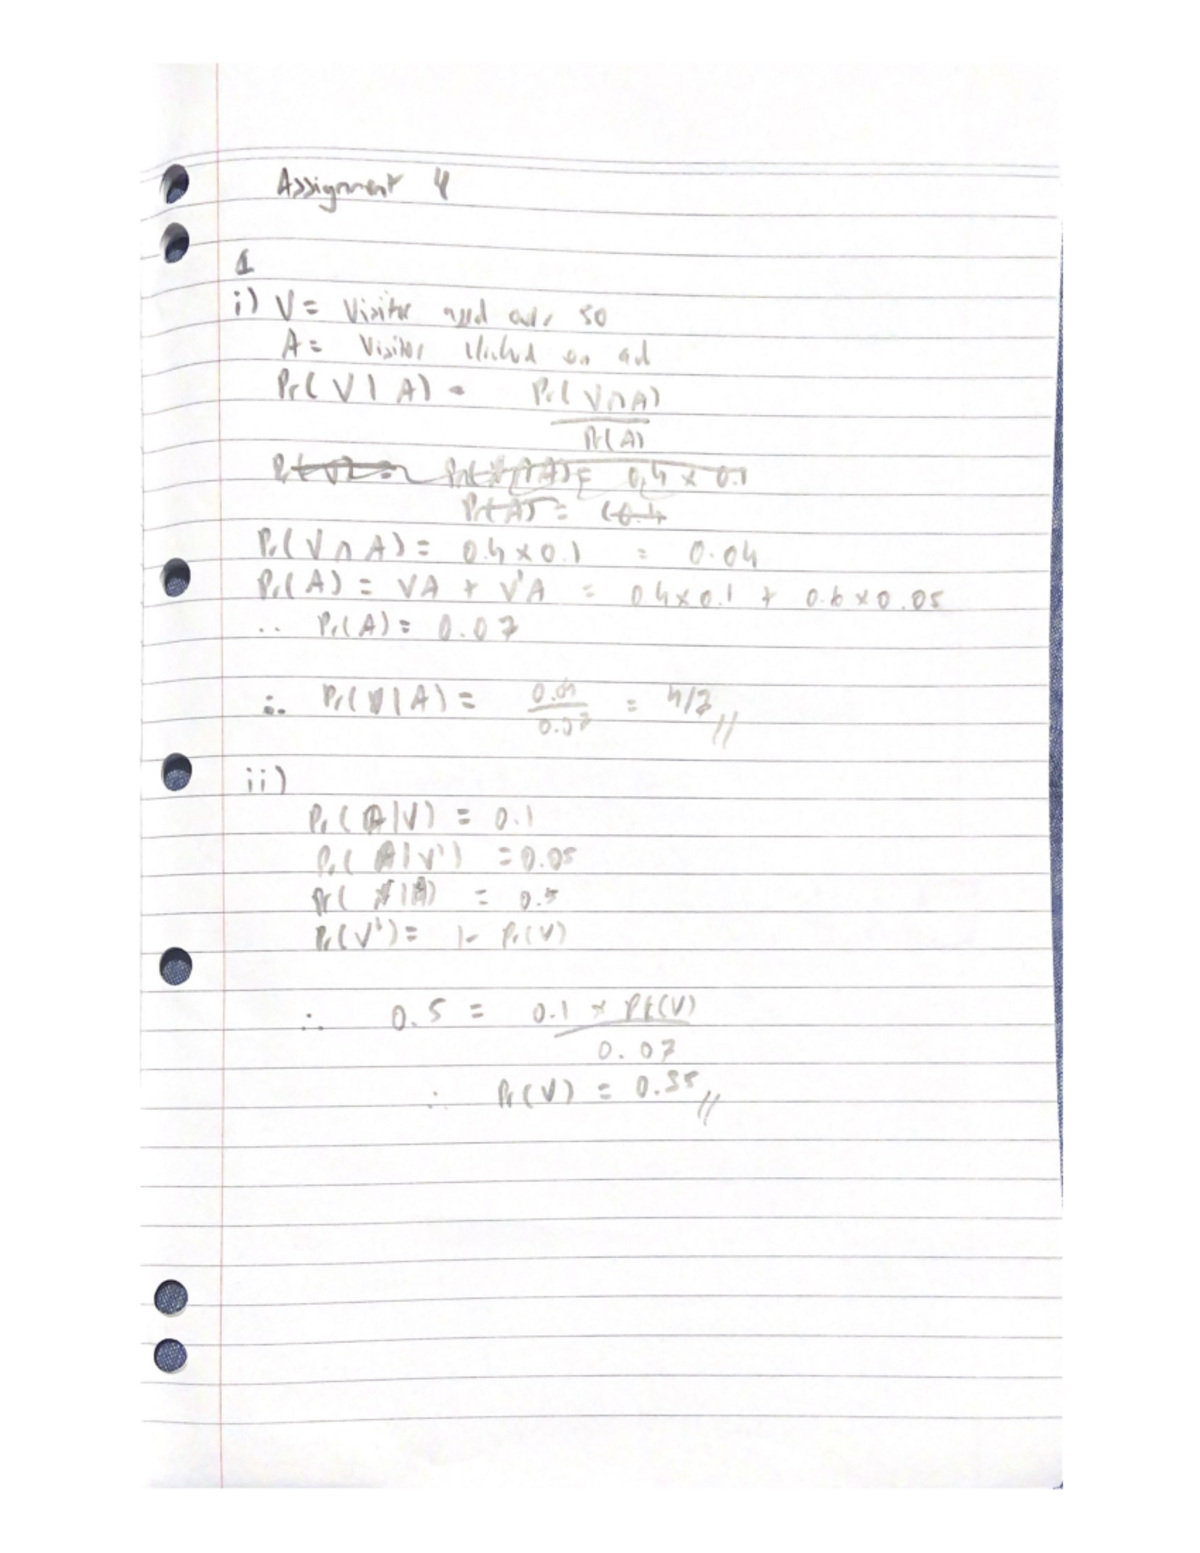 Assignment 4
1
i) V = Visitor aged over 50
A = Visitor clicked on ad
Pr( V | A) = Pr( V∩A)
Pr(A)
Pr(V∩A) = 0.4 x 0.1
Pr(A) = (0.4
Pr( V ∩ A) = 0.4 x 0.1 = 0.04
Pr(A) = VA + V'A = 0.4x0.1 + 0.6 x 0.05
∴ Pr(A) = 0.07
∴ Pr(V|A) = 0.04 = 4/7//
0.07
ii)
Pr( A|V) = 0.1
Pr( A|V') = 0.05
Pr( V|A) = 0.5
Pr(V') = 1- Pr(V)
∴ 0.5 = 0.1 x Pr(V)
0.07
∴ Pr(V) = 0.35//